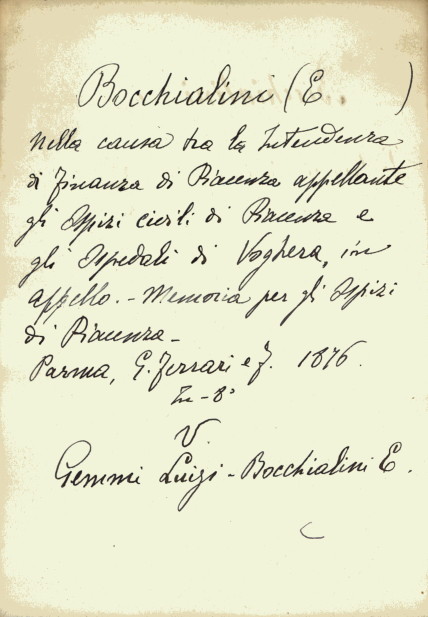 Bocchialini (E )
Nella causa tra la Intendenza
di Finanza di Piacenza appellante
gli Ospizi civili di Piacenza e
gli Ospedali di Voghera, in
appello. - Memoria per gli Ospizi
di Piacenza -
Parma, G. Ferrari e f. 1876.
In - 8°
V.
Gemmi Luigi - Bocchialini E.